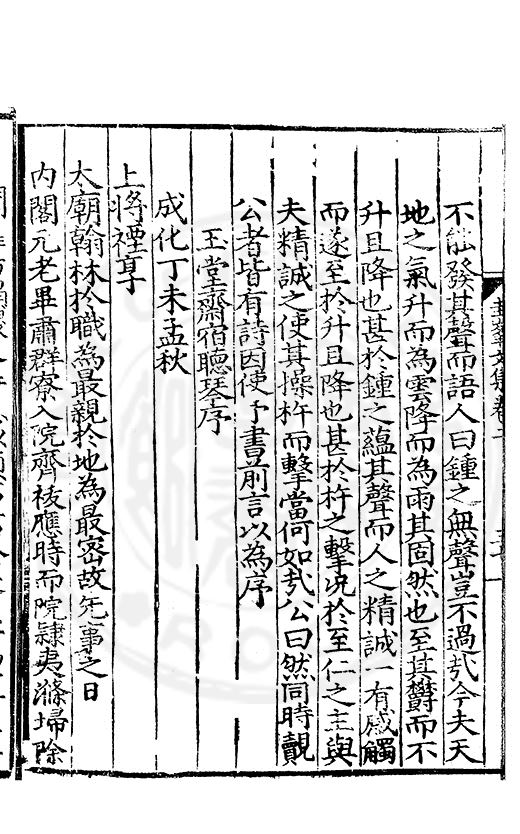 不能發其聲而語人曰鍾之無聲豈不過㢤今夫天
地之氣升而為雲降而為雨其固然也至其欝而不
升且降也甚於鍾之蘊其聲而人之精誠一有感觸
而遂至於升且降也甚於杵之擊况於至仁之主與
夫精誠之使其操杵而擊當何如㢤公曰然同時觀
公者皆有詩因使予書前言以為序
玉堂齋宿聽琴序
成化丁未孟秋
上將禋享
太廟翰林於職為最親於地為最密故先事之日
内閣元老畢肅群寮入院齊祓應時而院隷夷滌埽除